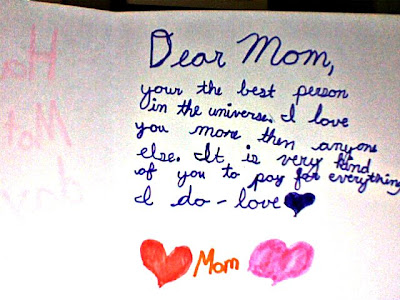 Dear Mom,
your the best person
in the universe. I love
you more then anyone
else. It is very kind
of you to pay for everything
I do - love
Mom
Ha
Mot
day